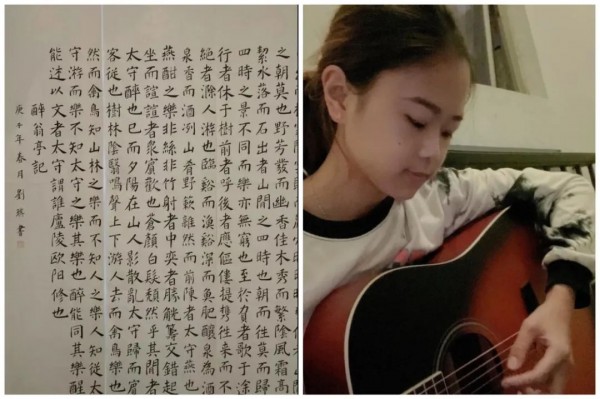 之朝莫也野芳發而幽香佳木秀而繁陰風霜高
絜水落而石出者山間之四時也朝而往莫而歸
四時之景不同而樂亦無窮也至於負者歌于涂
行者休于樹前者呼後者應傴僂提攜往來而不
絕者滁人游也臨谿而漁谿深而魚肥釀泉為酒
泉香而酒洌山肴野蔌雜然而前陳者太守燕也
燕酣之樂非絲非竹射者中奕者勝觥籌交錯起
坐而諠譁者衆賓歡也蒼顏白髮頹然乎其間者
太守醉也已而夕陽在山人影散亂太守歸而賓
客從也樹林陰翳鳴聲上下游人去而禽鳥樂也
然而禽鳥知山林之樂而不知人之樂人知從太
守游而樂不知太守之樂其樂也醉能同其樂醒
能述以文者太守謂誰廬陵歐阳修也
醉翁亭記
年春月劉書